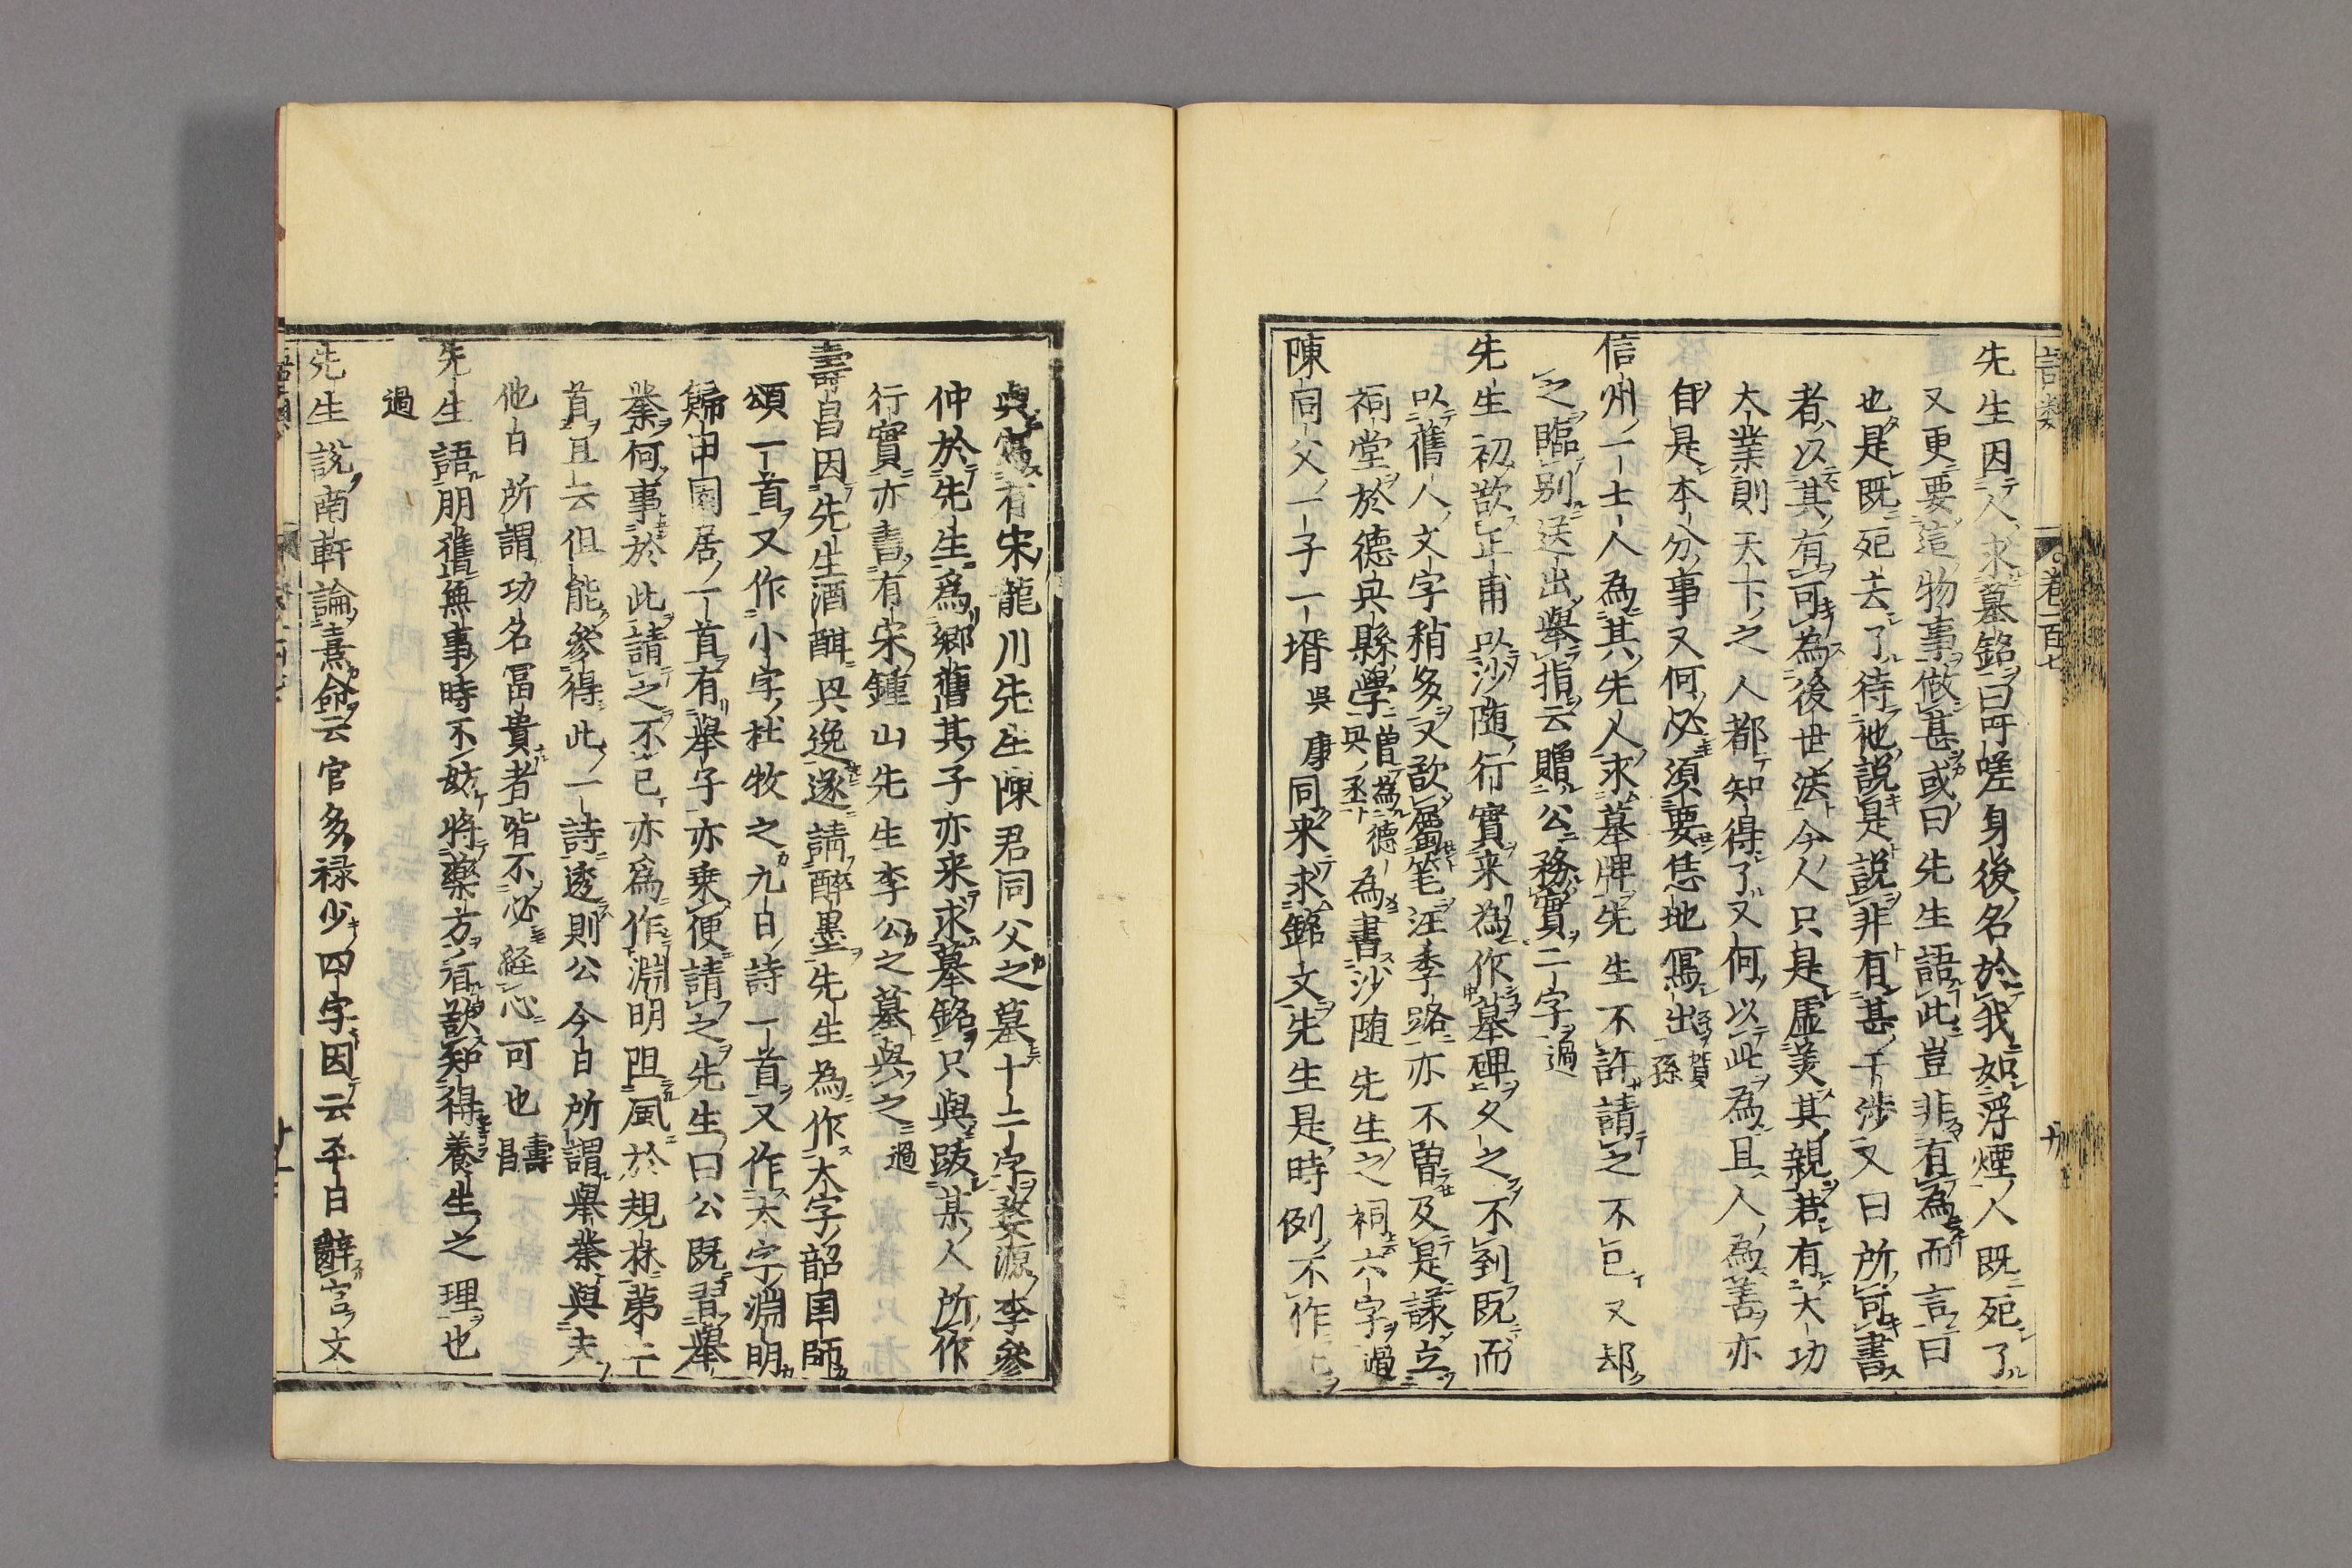 語類 卷一百七
先生因人求墓銘曰吁嗟身後名於我如浮煙人既死了
又更要這物事做甚或曰先生語此豈非有為而言曰
也是既死去了待他說是說非有甚干涉又曰所可書
者以其有可為後世法今人只是虛美其親若有大功
大業則天下之人都知得了又何以此為且人為善亦
自是本分事又何必須要恁地寫出 賀孫
信州一士人為其先人求墓碑先生不許請之不已又却
之臨別送出舉指云贈公務實二字 過
先生初欲正甫以沙随行實来為作墓碑久之不到既而
以舊人文字稍多又欲屬笔汪季路亦不曽及是議立
祠堂於德興縣學 曽為德興丞 為書沙随先生之祠六字 過
陳同父一子一壻 吳康 同来求銘文先生是時例不作此
與寫有宋龍川先生陳君同父之墓十二字婺源李參
仲於先生為鄉舊其子亦来求墓銘只與跋某人所作
行實亦書有宋鍾山先生李公之墓與之 過
壽昌因先生酒酣興逸遂請醉墨先生為作大字韶国師
頌一首又作小字杜牧之九日詩一首又作大字淵明
歸田園居一首有舉子亦乗便請之先生曰公既習舉
業何事於此請之不已亦為作淵明阻風於規林第二
首且云但能參得此一詩透則公今日所謂舉業與夫
他日所謂功名冨貴者皆不必経心可也 壽昌
先生語朋舊無事時不妨将藥方看欲知得養生之理也
過
先生說南軒論熹命云官多禄少四字因云平日辭官文